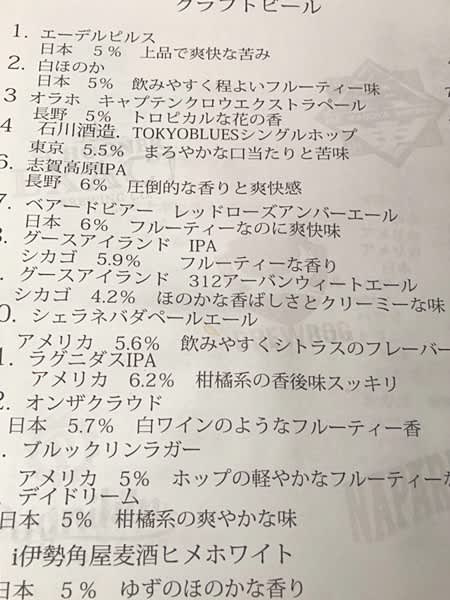 クラフトビール
1. エーデルピルス
日本 5% 上品で爽快な苦み
2. 白ほのか
日本 5% 飲みやすく程よいフルーティー味
3 オラホ キャプテンクロウエクストラペール
長野 5% トロピカルな花の香
4 石川酒造. TOKYOBLUESシングルホップ
東京 5.5% まろやかな口当たりと苦味
志賀高原IPA
長野 6% 圧倒的な香りと爽快感
7. ベアードビアー レッドローズアンバーエール
日本 6% フルーティーなのに爽快味
グースアイランド IPA
シカゴ 5.9% フルーティーな香り
. グースアイランド 312アーバンウィートエール
シカゴ 4.2% ほのかな香ばしさとクリーミーな味
0. シェラネバダペールエール
アメリカ 5.6% 飲みやすくシトラスのフレーバー
1. ラグニダスIPA
アメリカ 6.2% 柑橘系の香後味スッキリ
2. オンザクラウド
日本 5.7% 白ワインのようなフルーティー香
. ブルックリンラガー
アメリカ 5% ホップの軽やかなフルーティーな
. デイドリーム
日本 5% 柑橘系の爽やかな味
i伊勢角屋麦酒ヒメホワイト
日本 5% ゆずのほのかな香り